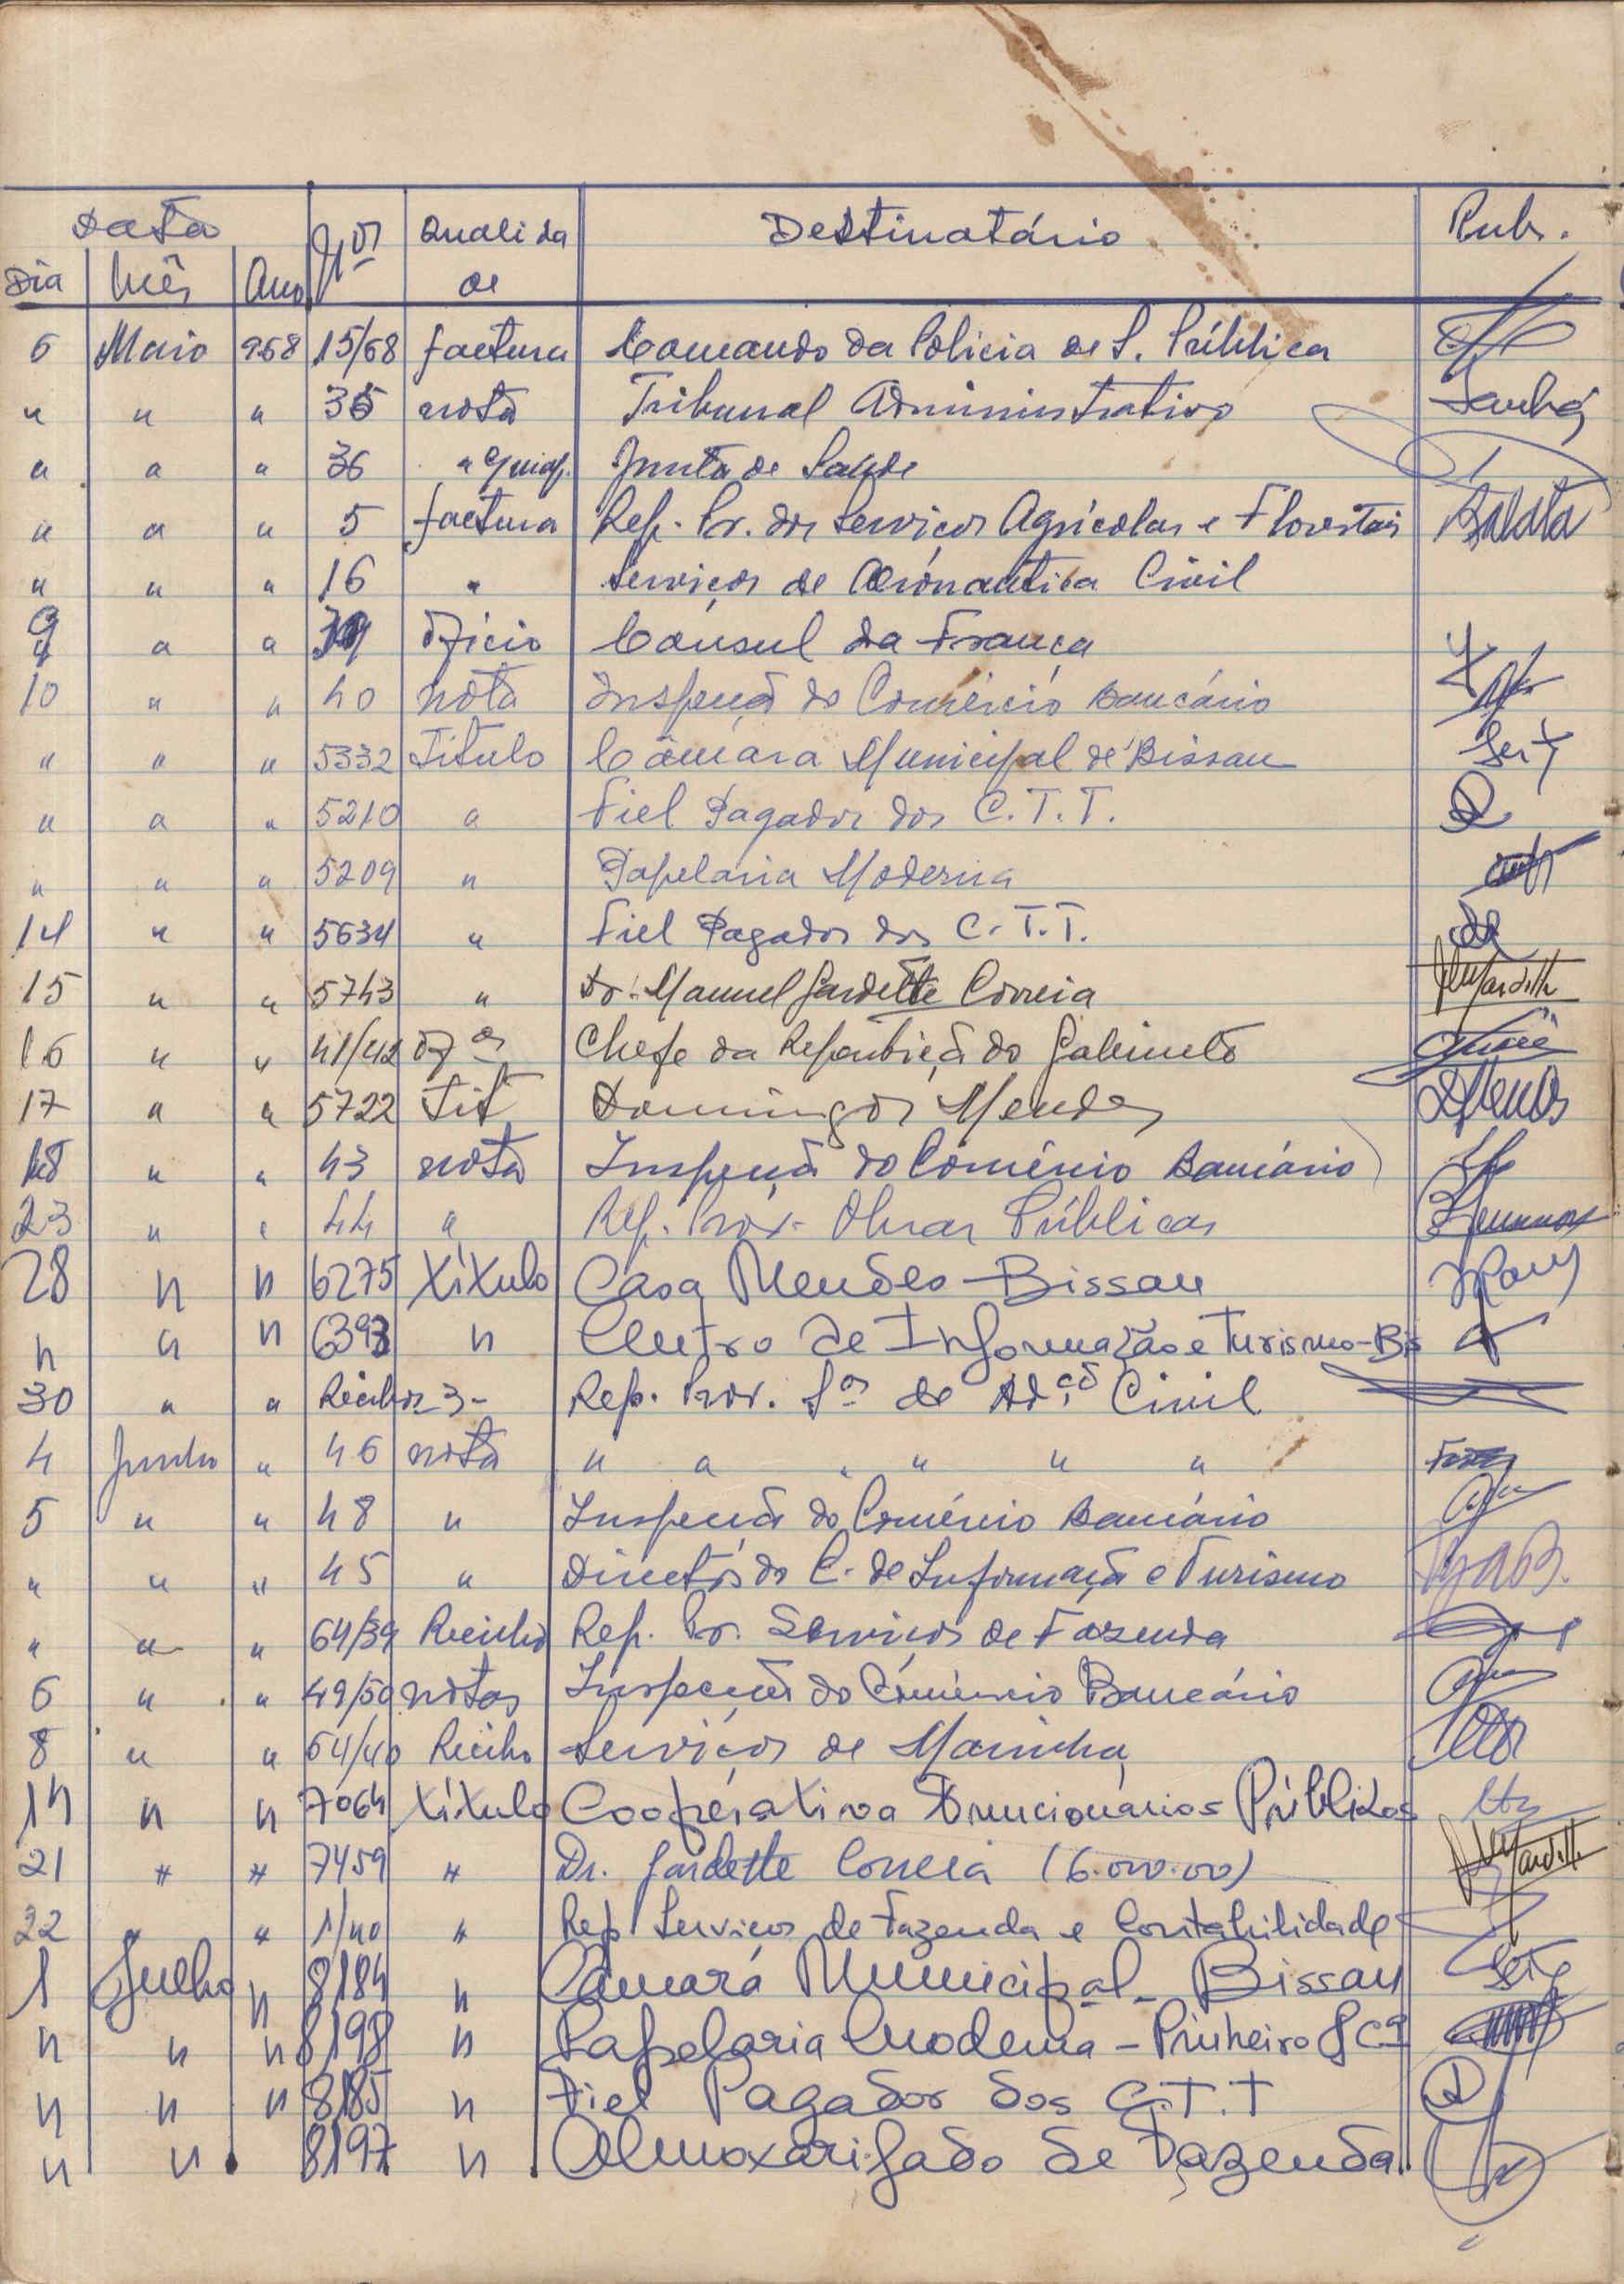 Data Nos Qualida Destinatário Rubr.
Dia Mês Ano de
6 Maio 968 15/68 factura Comando da Policia de S. Pública
" " " 35 nota Tribunal Administrativo Sanhá
" " " 36 " Junta de Saude
" " " 5 factura Rep. Pr. dos Serviços Agricolas e Florestais Balata
" " " 16 " Serviços de Aeronautica Civil
9 " " 39 Oficio Cônsul da França
10 " " 40 nota Inspeçã do Comércio Bancário
" " " 5332 Titulo Câmara Municipal de Bissau
" " " 5210 " Fiel Pagador dos C.T.T.
" " " 5209 " Papelaria Moderna
14 " " 5634 " Fiel Pagador dos C.T.T.
15 " " 5743 " Dr. Manuel Gardette Correia
16 " " 41/42 Of.os Chefe da Repartiçã do Gabinete
17 " " 5722 Tit Domingos Mendes DMendes
18 " " 43 nota Inspeçã do Comércio Bancário
23 " " 44 " Rep. Prov. Obras Públicas
28 " " 6275 Título Casa Mendes - Bissau
" " " 6393 " Centro de Informação e Turismo - Bis
30 " " Recibos 3 - Rep. Prov. Sos de Ad.çã Civil
4 Junho " 46 nota " " " " " "
5 " " 48 " Inspeçã do Comércio Bancário
" " " 45 " Directôr do C. de Informaçã e Turismo
" " " 64/39 Recibo Rep. Pr. Serviços de Fazenda
6 " " 49/50 notas Inspecçã do Comércio Bancário
8 " " 64/40 Recibo Serviços de Marinha
14 " " 7064 Título Cooperativa Funcionários Públicos
21 " " 7459 " Dr. Gardette Correia (6.000.00)
22 " " 1/40 " Rep Serviços de Fazenda e Contabilidade
1 Julho " 8184 " Câmara Municipal - Bissau
" " " 8198 " Papelaria Moderna - Pinheiro & Cª
" " " 8185 " Fiel Pagador dos C.T.T
" " " 8197 " Almoxarifado de Fazenda